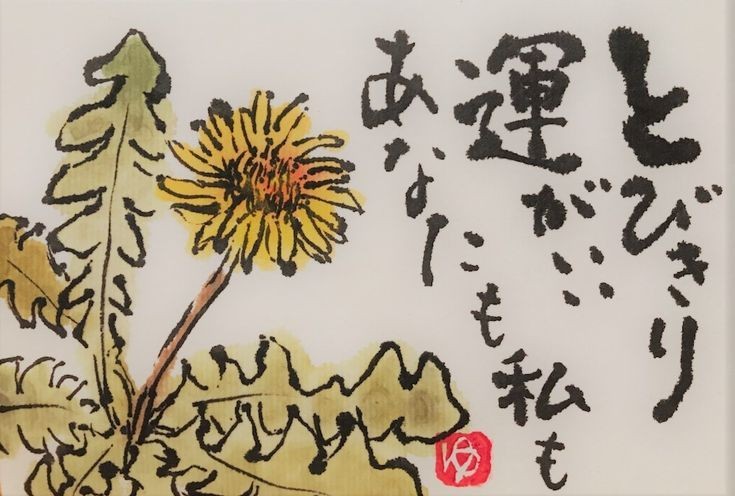 とびきり
運がいい
あなたも私も
ゆ